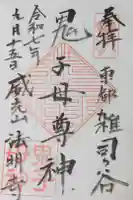 奉拝
東都雑司ヶ谷
鬼子母尊神
令和七年
九月十五日
威光山 法明寺